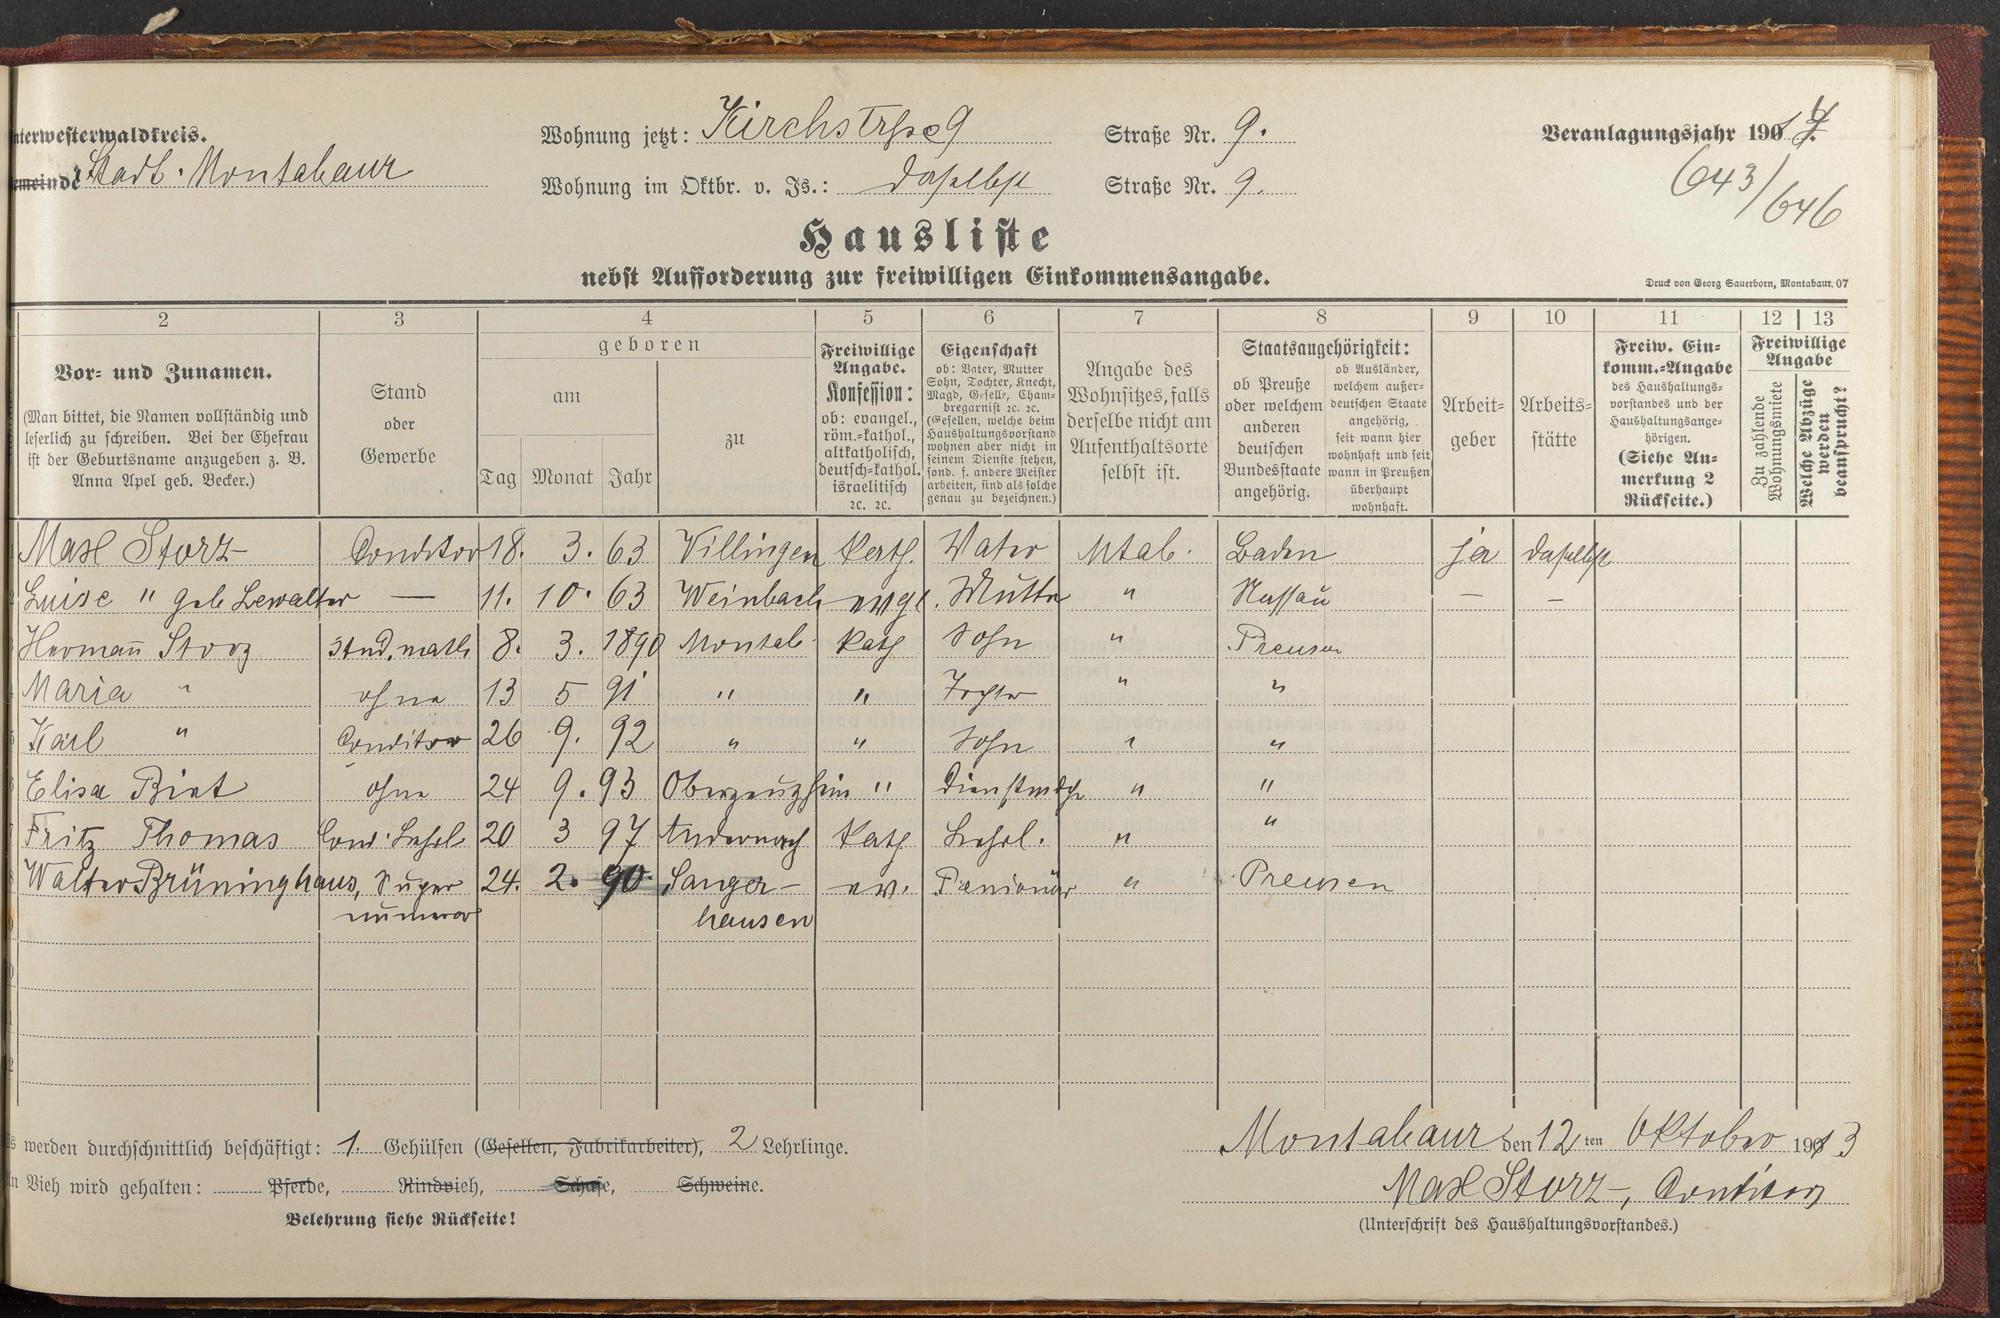 nterwesterwaldkreis.
Wohnung jetzt: Kirchstrße 9 Straße Nr. 9.
Veranlagungsjahr 190
emeinde Stadt Montabaur
Wohnung im Oktbr. v. Js.: daselbst Straße Nr. 9.
643/646
Hausliste
nebst Aufforderung zur freiwilligen Einkommensangabe.
Druck von Georg Sauerborn, Montabaur. 07
2 3 4 5 6 7 8 9 10 11 12 13
Vor- und Zunamen.
(Man bittet, die Namen vollständig und
leserlich zu schreiben. Bei der Ehefrau
ist der Geburtsname anzugeben z. B.
Anna Apel geb. Becker.)
Stand
oder
Gewerbe
geboren
am
Tag Monat Jahr
zu
Freiwillige
Angabe.
Konfession:
ob: evangel.,
röm.-kathol.,
altkatholisch,
deutsch-kathol.
israelitisch
2c. 2c.
Eigenschaft
ob: Vater, Mutter
Sohn, Tochter, Knecht,
Magd, Geselle, Cham-
bregarnist 2c. 2c.
(Gesellen, welche beim
Haushaltungsvorstand
wohnen aber nicht in
seinem Dienste stehen,
sond. f. andere Meister
arbeiten, sind als solche
genau zu bezeichnen.)
Angabe des
Wohnsitzes, falls
derselbe nicht am
Aufenthaltsorte
selbst ist.
Staatsangehörigkeit:
ob Preuße
oder welchem
anderen
deutschen
Bundesstaate
angehörig.
ob Ausländer,
welchem außer-
deutschen Staate
angehörig,
seit wann hier
wohnhaft und seit
wann in Preußen
überhaupt
wohnhaft.
Arbeit-
geber
Arbeits-
stätte
Freiw. Ein-
komm.-Angabe
des Haushaltungs-
vorstandes und der
Haushaltungsange-
hörigen.
(Siehe An-
merkung 2
Rückseite.)
Freiwillige
Angabe
Zu zahlende
Wohnungsmiete
Welche Abzüge
werden
beansprucht?
Max Storz Conditor 18. 3. 63 Villingen kath. Vater Mtab. Baden ja daselbst
Luise " geb Lewalter — 11. 10. 63 Weinbach evgl. Mutter " Nassau — —
Hermañ Storz stud. math 8. 3. 1890 Montab. kath Sohn " Preusen
Maria " ohne 13 5 91 " " Tochter " "
Karl " Conditor 26 9. 92 " " Sohn " "
Elisa Birt ohne 24 9. 93 Oberzeuzheim " Dienstmdch " "
Fritz Thomas Cond. Lehrl 20 3 97 Andernach kath Lehrl. " "
Walter Brüninghaus, Super 24. 2. 90. Sanger- ev. Pensionär " Preusen
numerar hausen
werden durchschnittlich beschäftigt: 1. Gehülfen (Gesellen, Fabrikarbeiter), 2 Lehrlinge.
Montabaur den 12 ten Oktober 1913
n Vieh wird gehalten: Pferde, Rindvieh, Schafe, Schweine.
Max Storz, Conditor
Belehrung siehe Rückseite!
(Unterschrift des Haushaltungsvorstandes.)